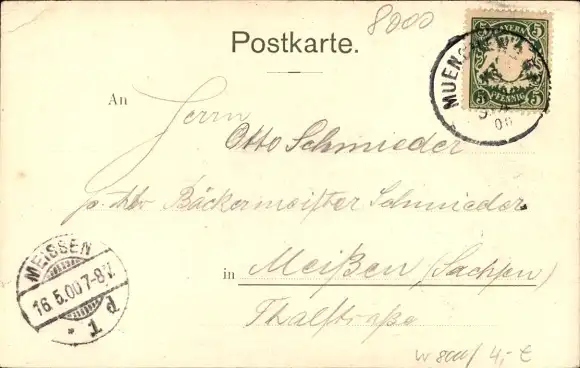 8000
Postkarte.
BAYERN
5 5
5 PFENNIG 5
MUENCHEN 4
00
An
Herrn
Otto Schmieder
Bäckermeister Schmieder
in Meißen (Sachsen)
Thalstraße
MEISSEN
16.5.00 7-8V.
P T
W 8000/ 4,- €